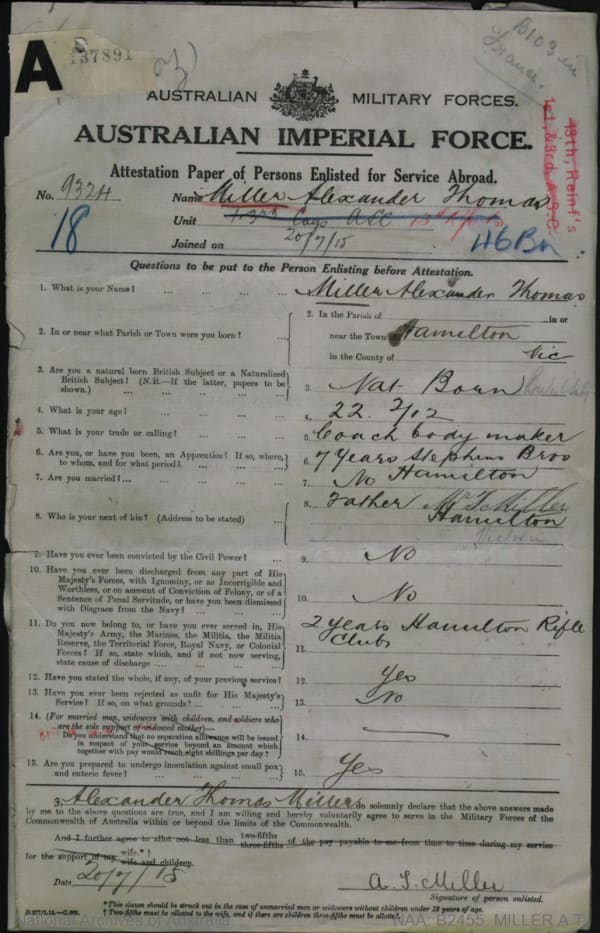 A
137891
B103 in
France.
AUSTRALIAN MILITARY FORCES.
AUSTRALIAN IMPERIAL FORCE.
Attestation Paper of Persons Enlisted for Service Abroad.
No. 9324 Name Miller Alexander Thomas
Unit ASC
18 46 Bn
Joined on 20/7/15
13th, Reinf's
1st, & 3rd, A.S.C.
Questions to be put to the Person Enlisting before Attestation.
1. What is your Name? ... Miller Alexander Thomas
2. In or near what Parish or Town were you born? ... 2. In the Parish of in or
near the Town of Hamilton
in the County of Vic
3. Are you a natural born British Subject or a Naturalized
British Subject? (N.B.—If the latter, papers to be
shown.) ... 3. Nat Born
4. What is your age? ... 4. 22. 2/12
5. What is your trade or calling? ... 5. Coach body maker
6. Are you, or have you been, an Apprentice? If so, where,
to whom, and for what period? ... 6. 7 years Stephens Bros
Hamilton
7. Are you married? ... 7. No
8. Who is your next of kin? (Address to be stated) ... 8. Father Mr T Miller
Hamilton
Victoria
9. Have you ever been convicted by the Civil Power? ... 9. No
10. Have you ever been discharged from any part of His
Majesty's Forces, with Ignominy, or as Incorrigible and
Worthless, or on account of Conviction of Felony, or of a
Sentence of Penal Servitude, or have you been dismissed
with Disgrace from the Navy? ... 10. No
11. Do you now belong to, or have you ever served in, His
Majesty's Army, the Marines, the Militia, the Militia
Reserve, the Territorial Force, Royal Navy, or Colonial
Forces? If so, state which, and if not now serving,
state cause of discharge ... 11. 2 years Hamilton Rifle
Club
12. Have you stated the whole, if any, of your previous service? 12. Yes
13. Have you ever been rejected as unfit for His Majesty's
Service? If so, on what grounds? ... 13. No
14. (For married men, widowers with children, and soldiers who
are the sole support of widowed mother)—
Do you understand that no separation allowance will be issued
in respect of your service beyond an amount which
together with pay would reach eight shillings per day? 14. —
15. Are you prepared to undergo inoculation against small pox
and enteric fever? ... 15. Yes
I, Alexander Thomas Miller do solemnly declare that the above answers made
by me to the above questions are true, and I am willing and hereby voluntarily agree to serve in the Military Forces of the
Commonwealth of Australia within or beyond the limits of the Commonwealth.
And I further agree to allot not less than two-fifths three-fifths of the pay payable to me from time to time during my service
for the support of my wife.*† wife and children.
Date 20/7/15
A. T. Miller
Signature of person enlisted.
*This clause should be struck out in the case of unmarried men or widowers without children under 18 years of age.
† Two-fifths must be allotted to the wife, and if there are children three-fifths must be allotted.
National Archives of Australia NAA: B2455, MILLER A T